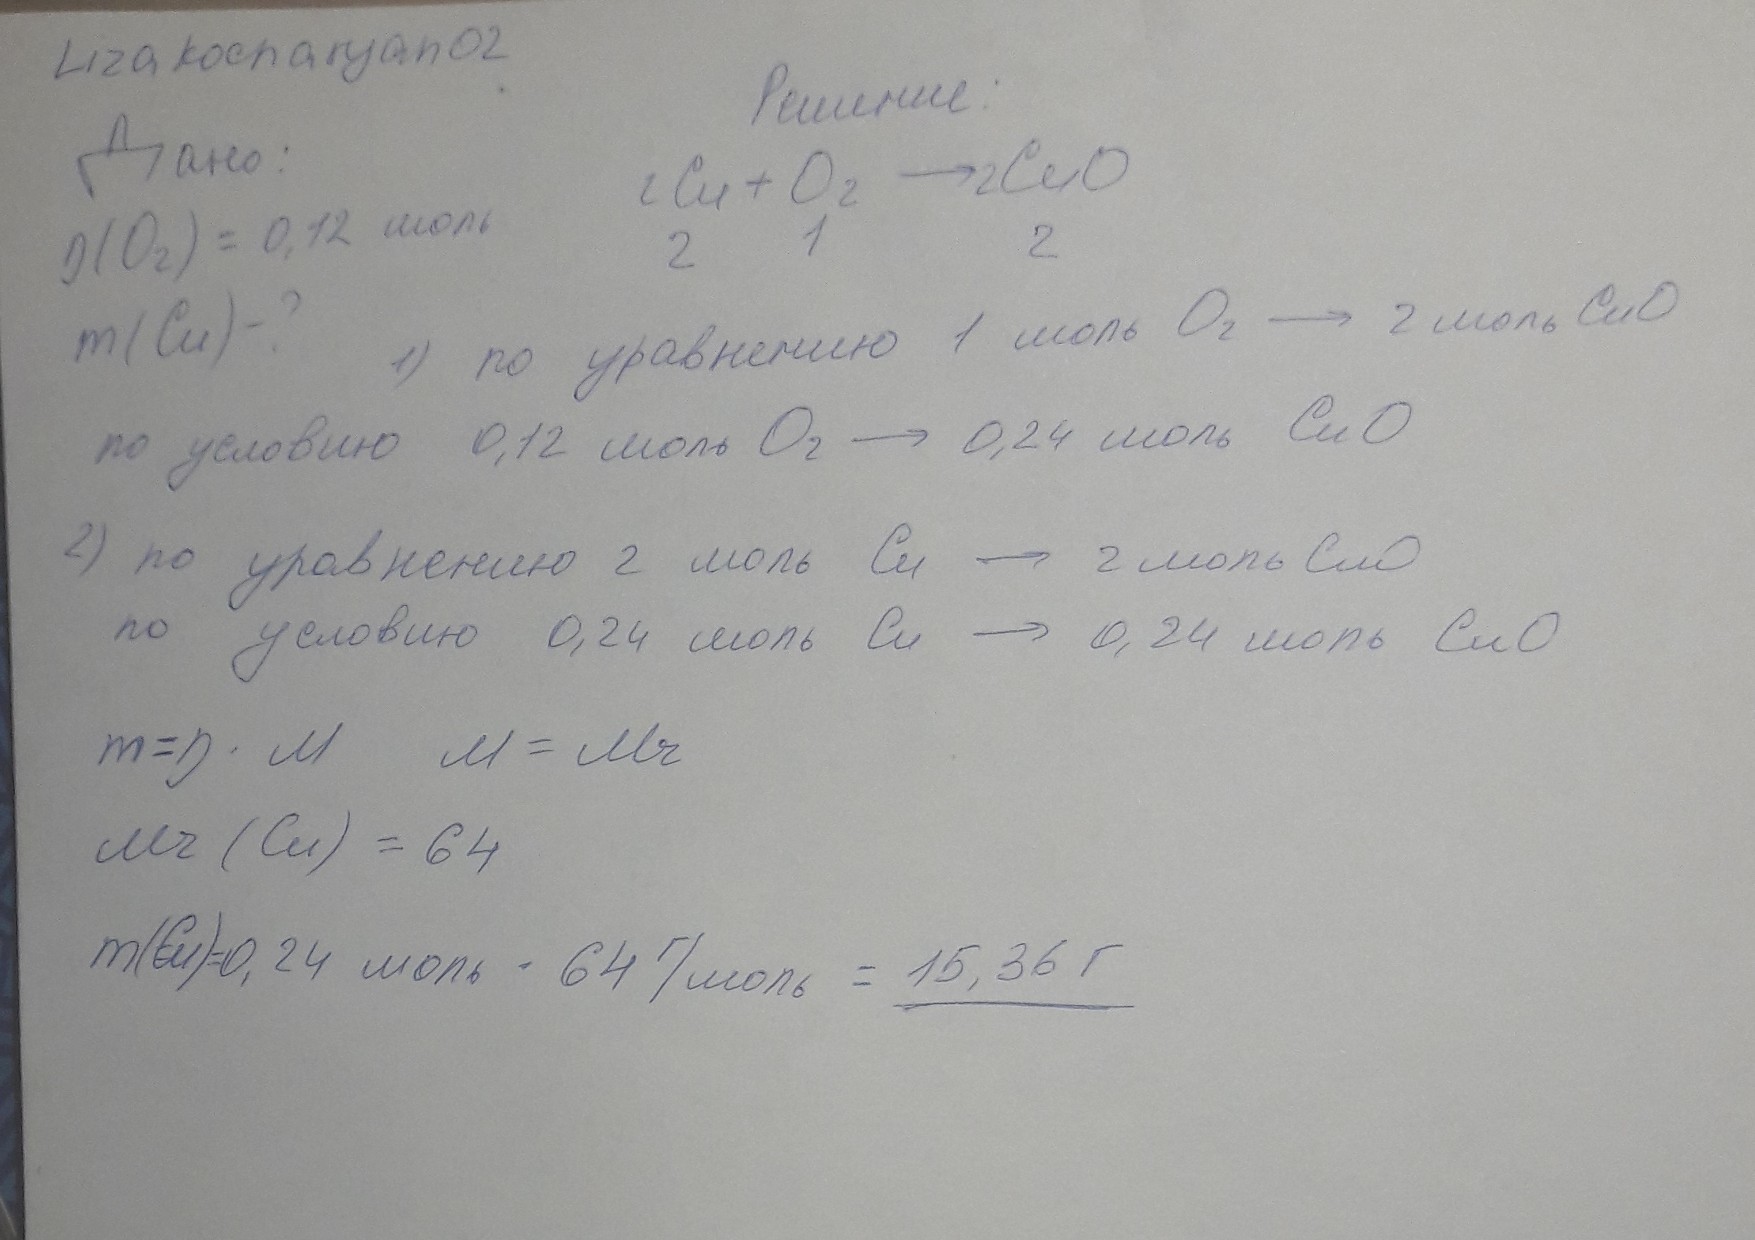 Lizakocharyan02
Дано:
Решение:
n(O2) = 0,12 моль
2Cu + O2 → 2CuO
2 1 2
m(Cu) - ?
1) по уравнению 1 моль O2 → 2 моль CuO
по условию 0,12 моль O2 → 0,24 моль CuO
2) по уравнению 2 моль Cu → 2 моль CuO
по условию 0,24 моль Cu → 0,24 моль CuO
m=n · M M = Mr
Mr (Cu) = 64
m(Cu)=0,24 моль · 64 г/моль = 15,36 г